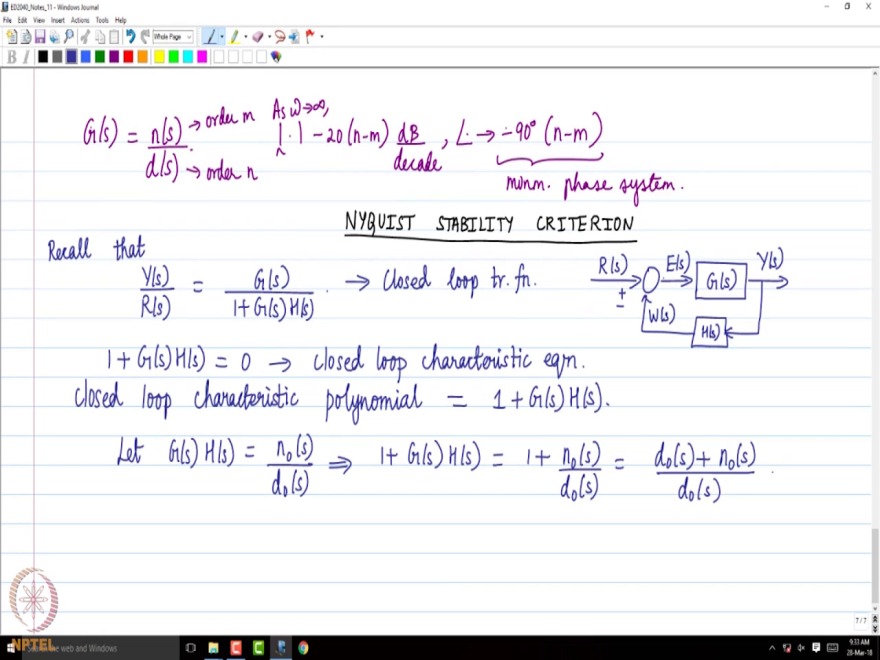 ED2040_Notes_11 - Windows Journal
File Edit View Insert Actions Tools Help
Whole Page
B I
G(s) = n(s)/d(s) → order m → order n As ω→∞, |·| -20(n-m) dB/decade, ∠· → -90° (n-m)
minm. phase system.
NYQUIST STABILITY CRITERION
Recall that
Y(s)/R(s) = G(s)/(1+G(s)H(s)) . → Closed loop tr. fn.
R(s) + - E(s) G(s) Y(s)
W(s) H(s)
1+G(s)H(s) = 0 → closed loop characteristic eqn.
Closed loop characteristic polynomial = 1+G(s)H(s).
Let G(s)H(s) = n₀(s)/d₀(s) ⇒ 1+G(s)H(s) = 1+ n₀(s)/d₀(s) = (d₀(s)+n₀(s))/d₀(s) .
7/7
NPTEL
the web and Windows
9:33 AM
28-Mar-18